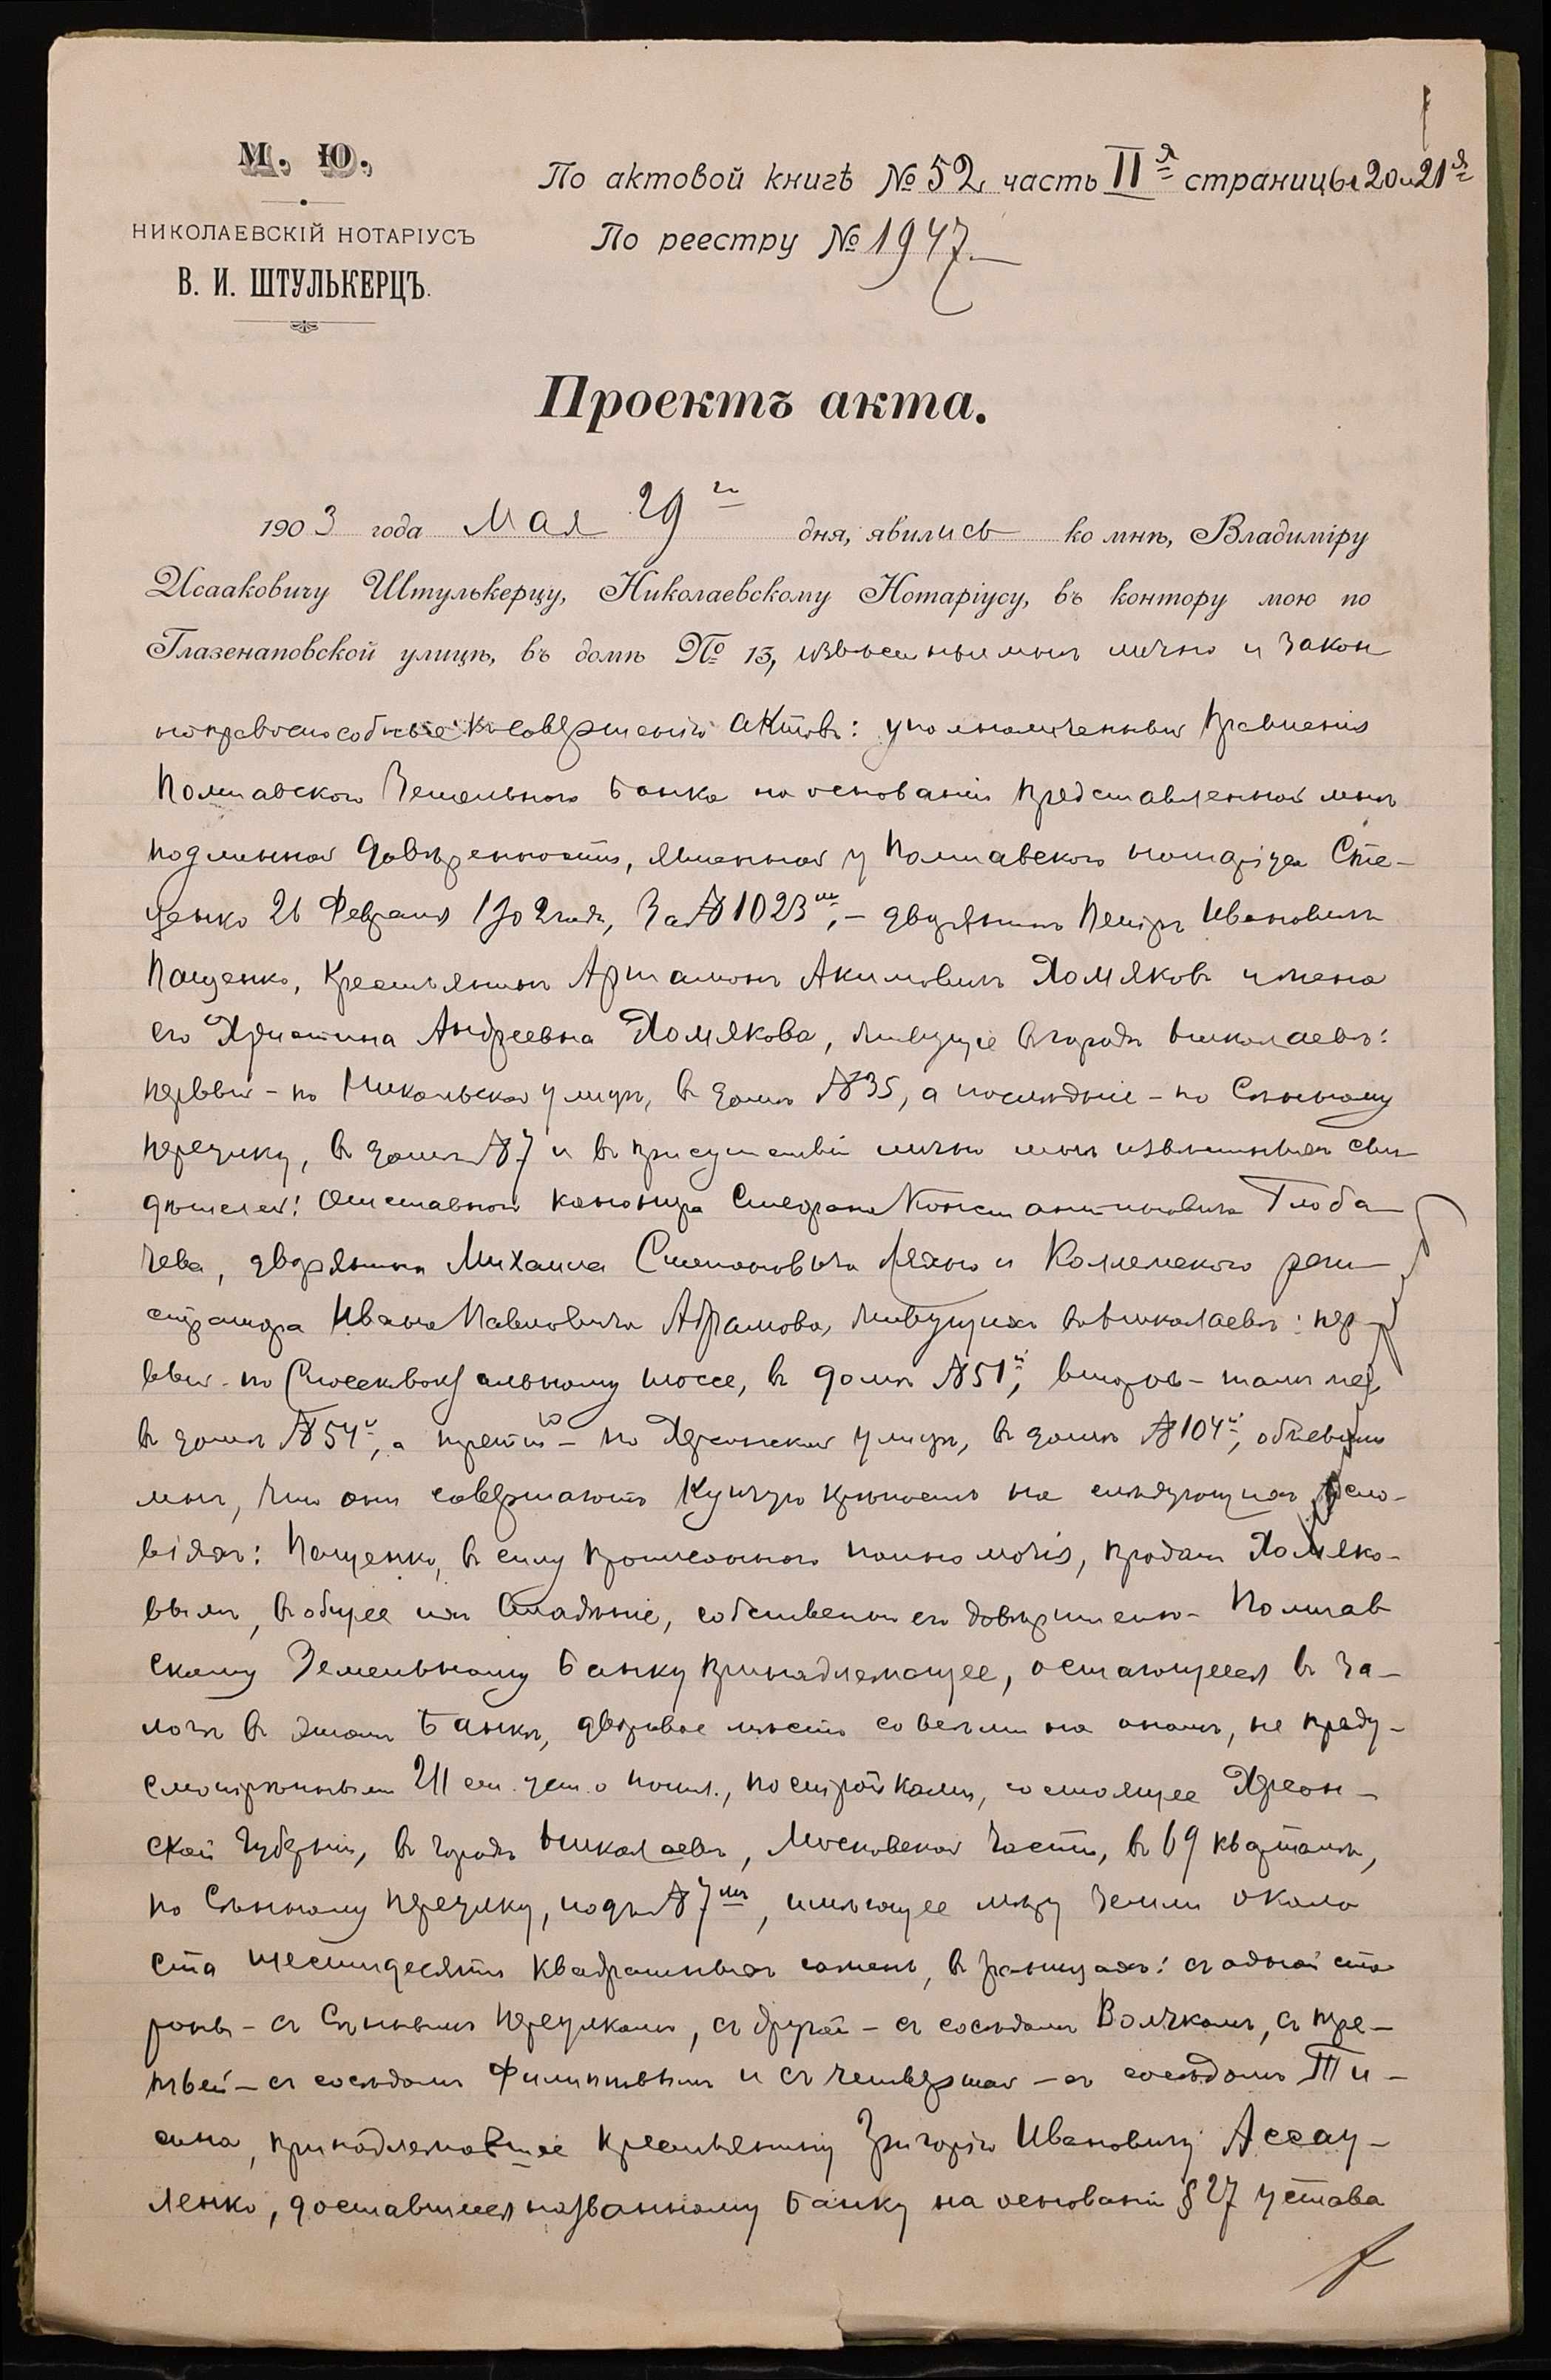 М. Ю.
НИКОЛАЕВСКІЙ НОТАРІУСЪ
В. И. ШТУЛЬКЕРЦЪ.
По актовой книгѣ № 52 часть II я страницы 20 и 21 я
По реестру № 1947
Проектъ акта.
1903 года Мая 29 го дня, явились ко мнѣ, Владиміру
Исааковичу Штулькерцу, Николаевскому Нотаріусу, въ контору мою по
Глазенаповской улицѣ, въ домѣ № 13, извѣстные мнѣ лично и закон
но правоспособные къ совершенію актовъ: уполномоченный Правленія
Полтавскаго Земельнаго Банка на основаніи представленной мнѣ
подлинной довѣренности, явленной у Полтавскаго нотаріуса Сте-
ценко 26 Февраля 1902 года, за № 1023 мъ, – дворянинъ Петръ Ивановичъ
Пащенко, крестьянинъ Артамонъ Акимовичъ Хомяковъ и жена
его Христина Андреевна Хомякова, живущіе въ городѣ Николаевѣ:
первый – по Никольской улицѣ, въ домѣ № 35, а послѣдніе – по Сѣнному
переулку, въ домѣ № 7 и въ присутствіи лично мнѣ извѣстныхъ сви-
дѣтелей: отставного канонира Стефана Константиновича Глоба-
чева, дворянина Михаила Степановича Лахно и Коллежскаго реги-
стратора Ивана Павловича Абрамова, живущихъ въ Николаевѣ: пер-
вый – по шоссе, въ домѣ № 51 й, второй – тамъ же,
въ домѣ № 54 й, а третій – по Херсонской улицѣ, въ домѣ № 104 й, объявили
мнѣ, что они совершаютъ купчую крѣпость на слѣдующихъ усло-
віяхъ: Пащенко, въ силу прописаннаго полномочія, продалъ Хомяко-
вымъ, въ общее ихъ владѣніе, собственно его довѣрителю – Полтав
скому Земельному Банку принадлежащее, остающееся въ за-
логѣ въ этомъ Банкѣ, дворовое мѣсто со всѣми на ономъ, не преду-
смотрѣнными 211 ст. уст. о пошл., постройками, состоящее Херсон-
ской губерніи, въ городѣ Николаевѣ, Московской части, въ 69 кварталѣ,
по Сѣнному переулку, подъ № 7 мъ, имѣющее мѣру земли около
ста шестидесяти квадратныхъ сажень, въ границахъ: съ одной сто
роны – съ Сѣннымъ переулкомъ, съ другой – съ сосѣдомъ Волчкомъ, съ тре-
тьей – съ сосѣдомъ Филипповымъ и съ четвертой – съ сосѣдомъ Ти-
сина, принадлежавшее крестьянину Григорію Ивановичу Ассау-
ленко, доставшееся названному Банку на основаніи § 27 устава